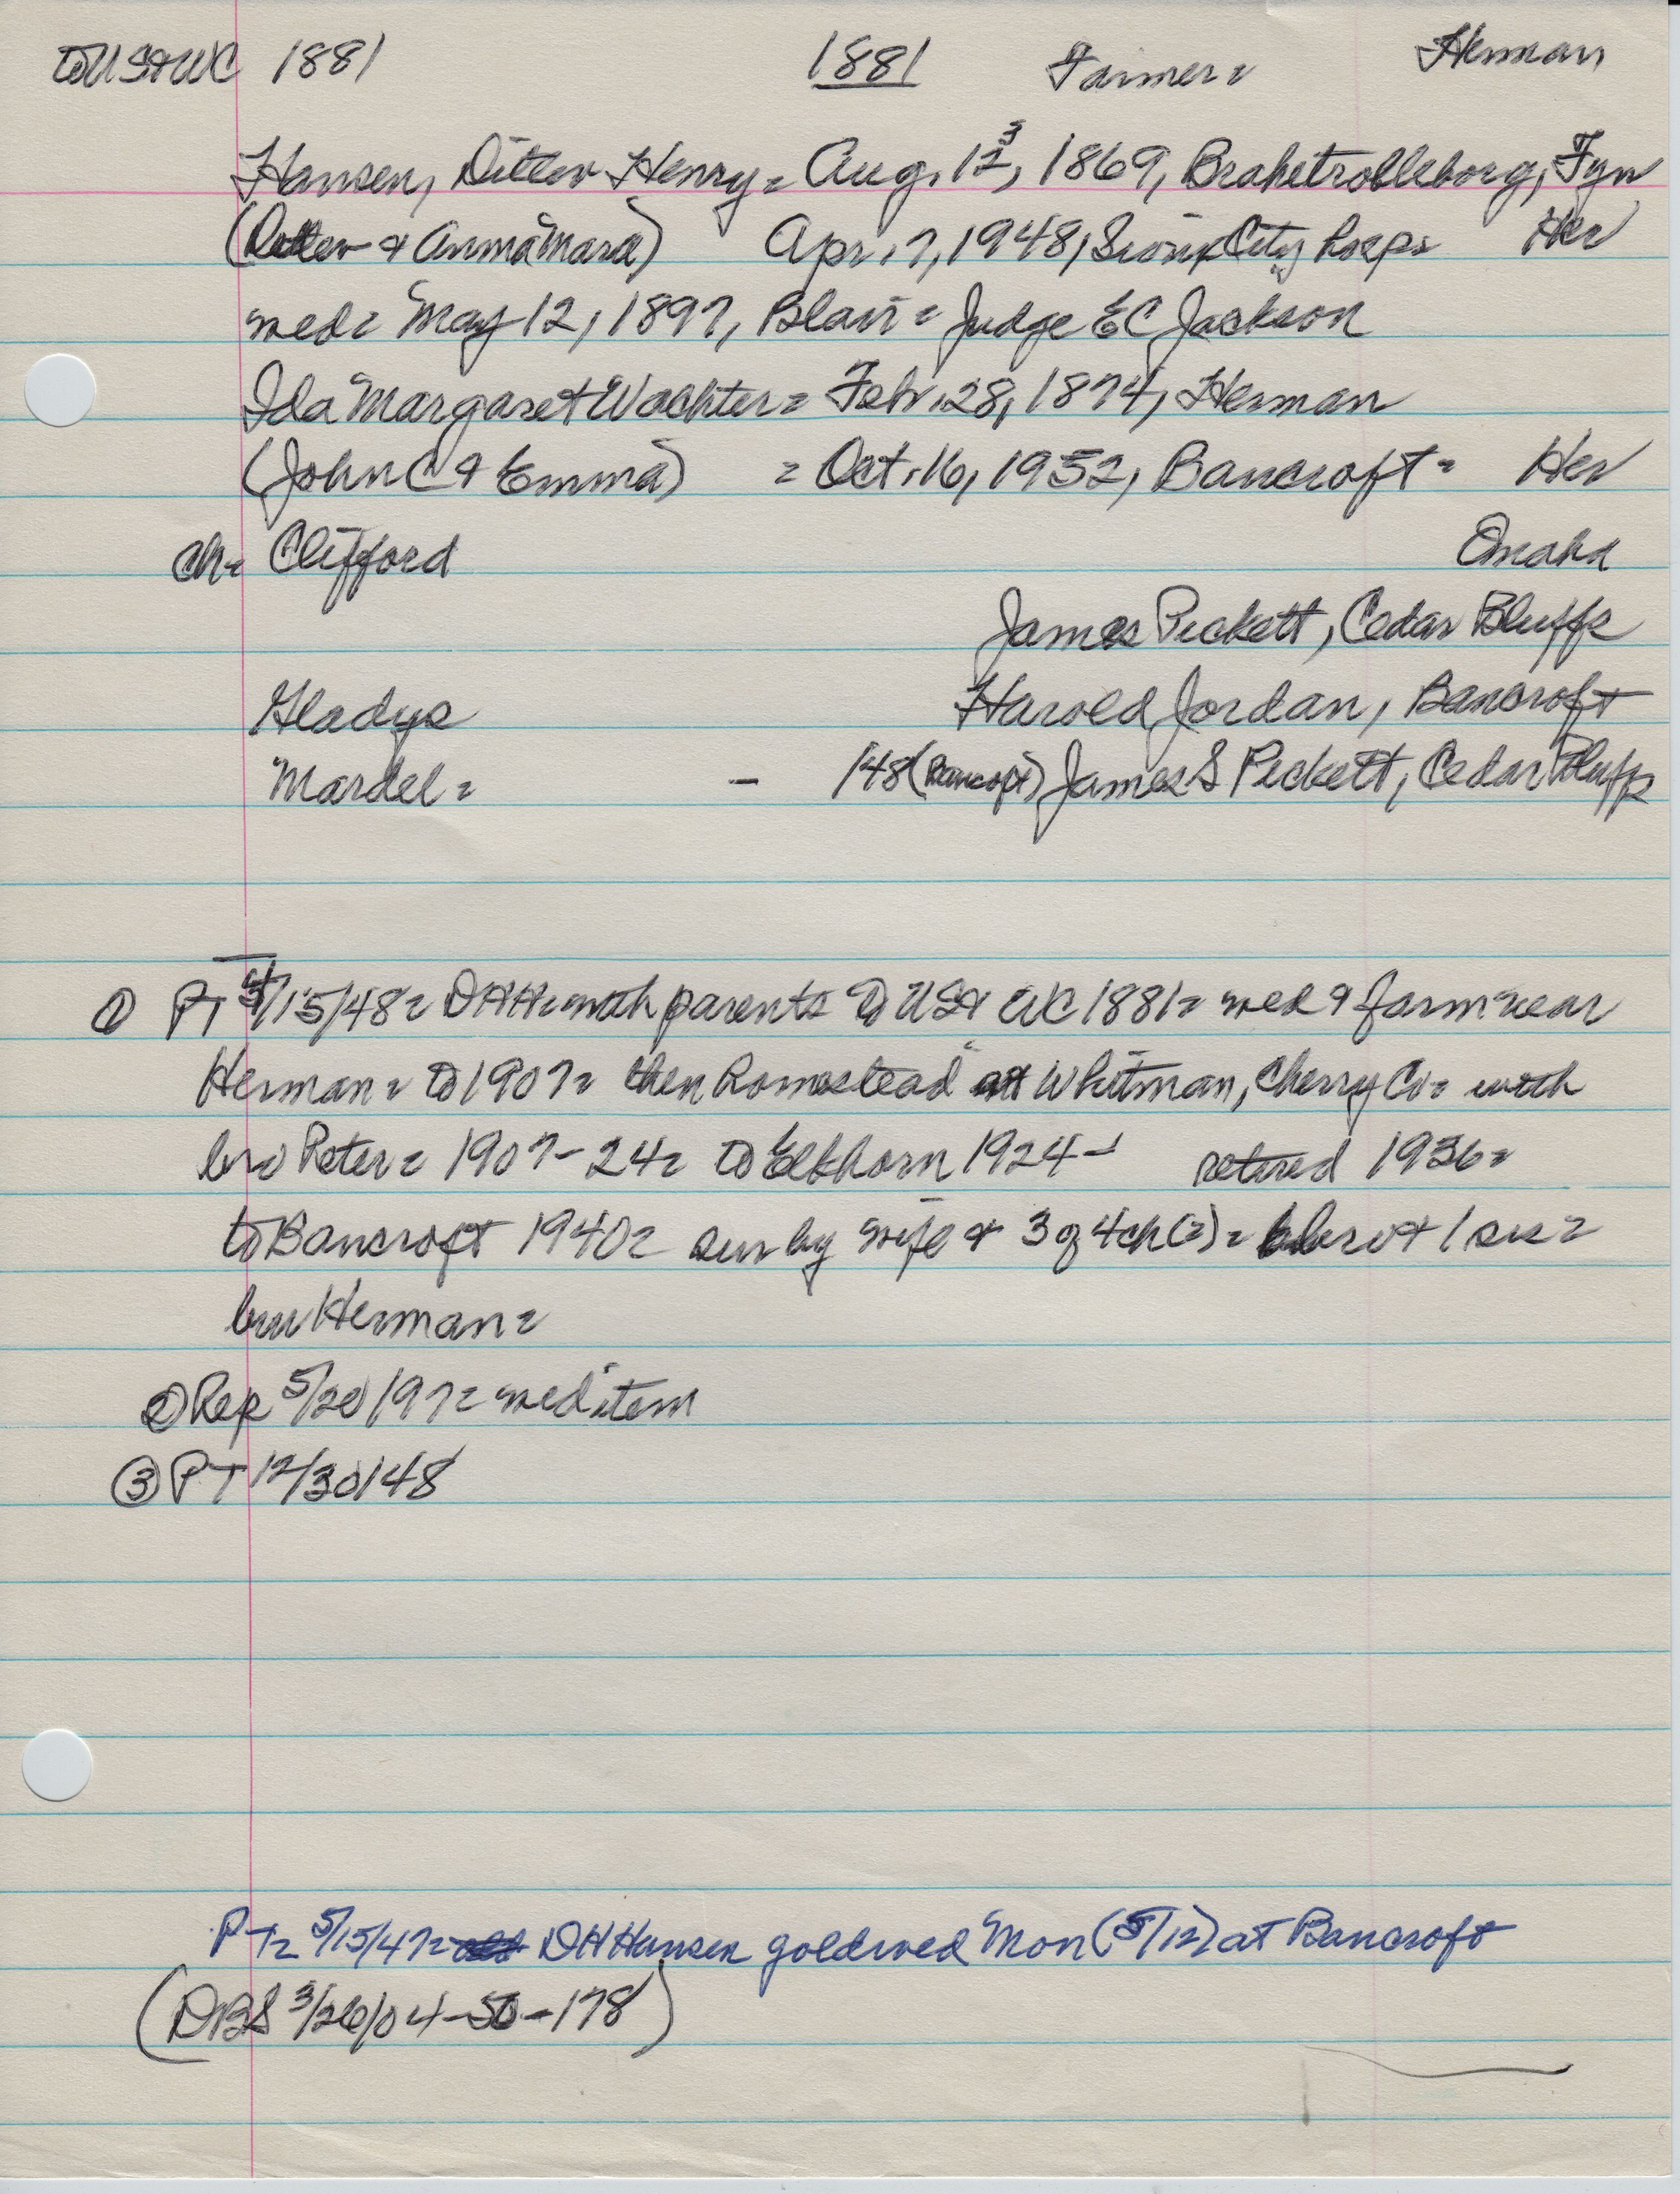 to USA & WC 1881 1881 Farmer = Herman
Hansen, Ditlev Henry = Aug. 13, 1869, Brahetrolleborg, Fyn
(Ditlev & Anna Mara) Apr. 7, 1948, Sioux City hosp = Her
wed = May 12, 1897, Blair = Judge EC Jackson
Ida Margaret Wachter = Feb. 28, 1874, Herman
(John C & Emma) = Oct. 16, 1952, Bancroft = Her
ch = Clifford Omaha
James Pickett, Cedar Bluffs
Gladys Harold Jordan, Bancroft
Mardel = - '48 (Bancroft) James S Pickett, Cedar Bluffs
① PT 4/15/48 = DHH = with parents to USA & WC 1881 = wed & farm near
Herman = to 1907 = then homestead at Whitman, Cherry Co = with
bro Peter = 1907-24 = to Elkhorn 1924- retired 1936 =
to Bancroft 1940 = sur by wife & 3 of 4 ch (?) = bro + 1 sis =
bur Herman =
② Rep 5/20/97 = wed item
③ PT 12/30/48
PT = 5/15/47 = DH Hansen gold wed Mon (5/12) at Bancroft
(DBS 3/26/04-50-178)